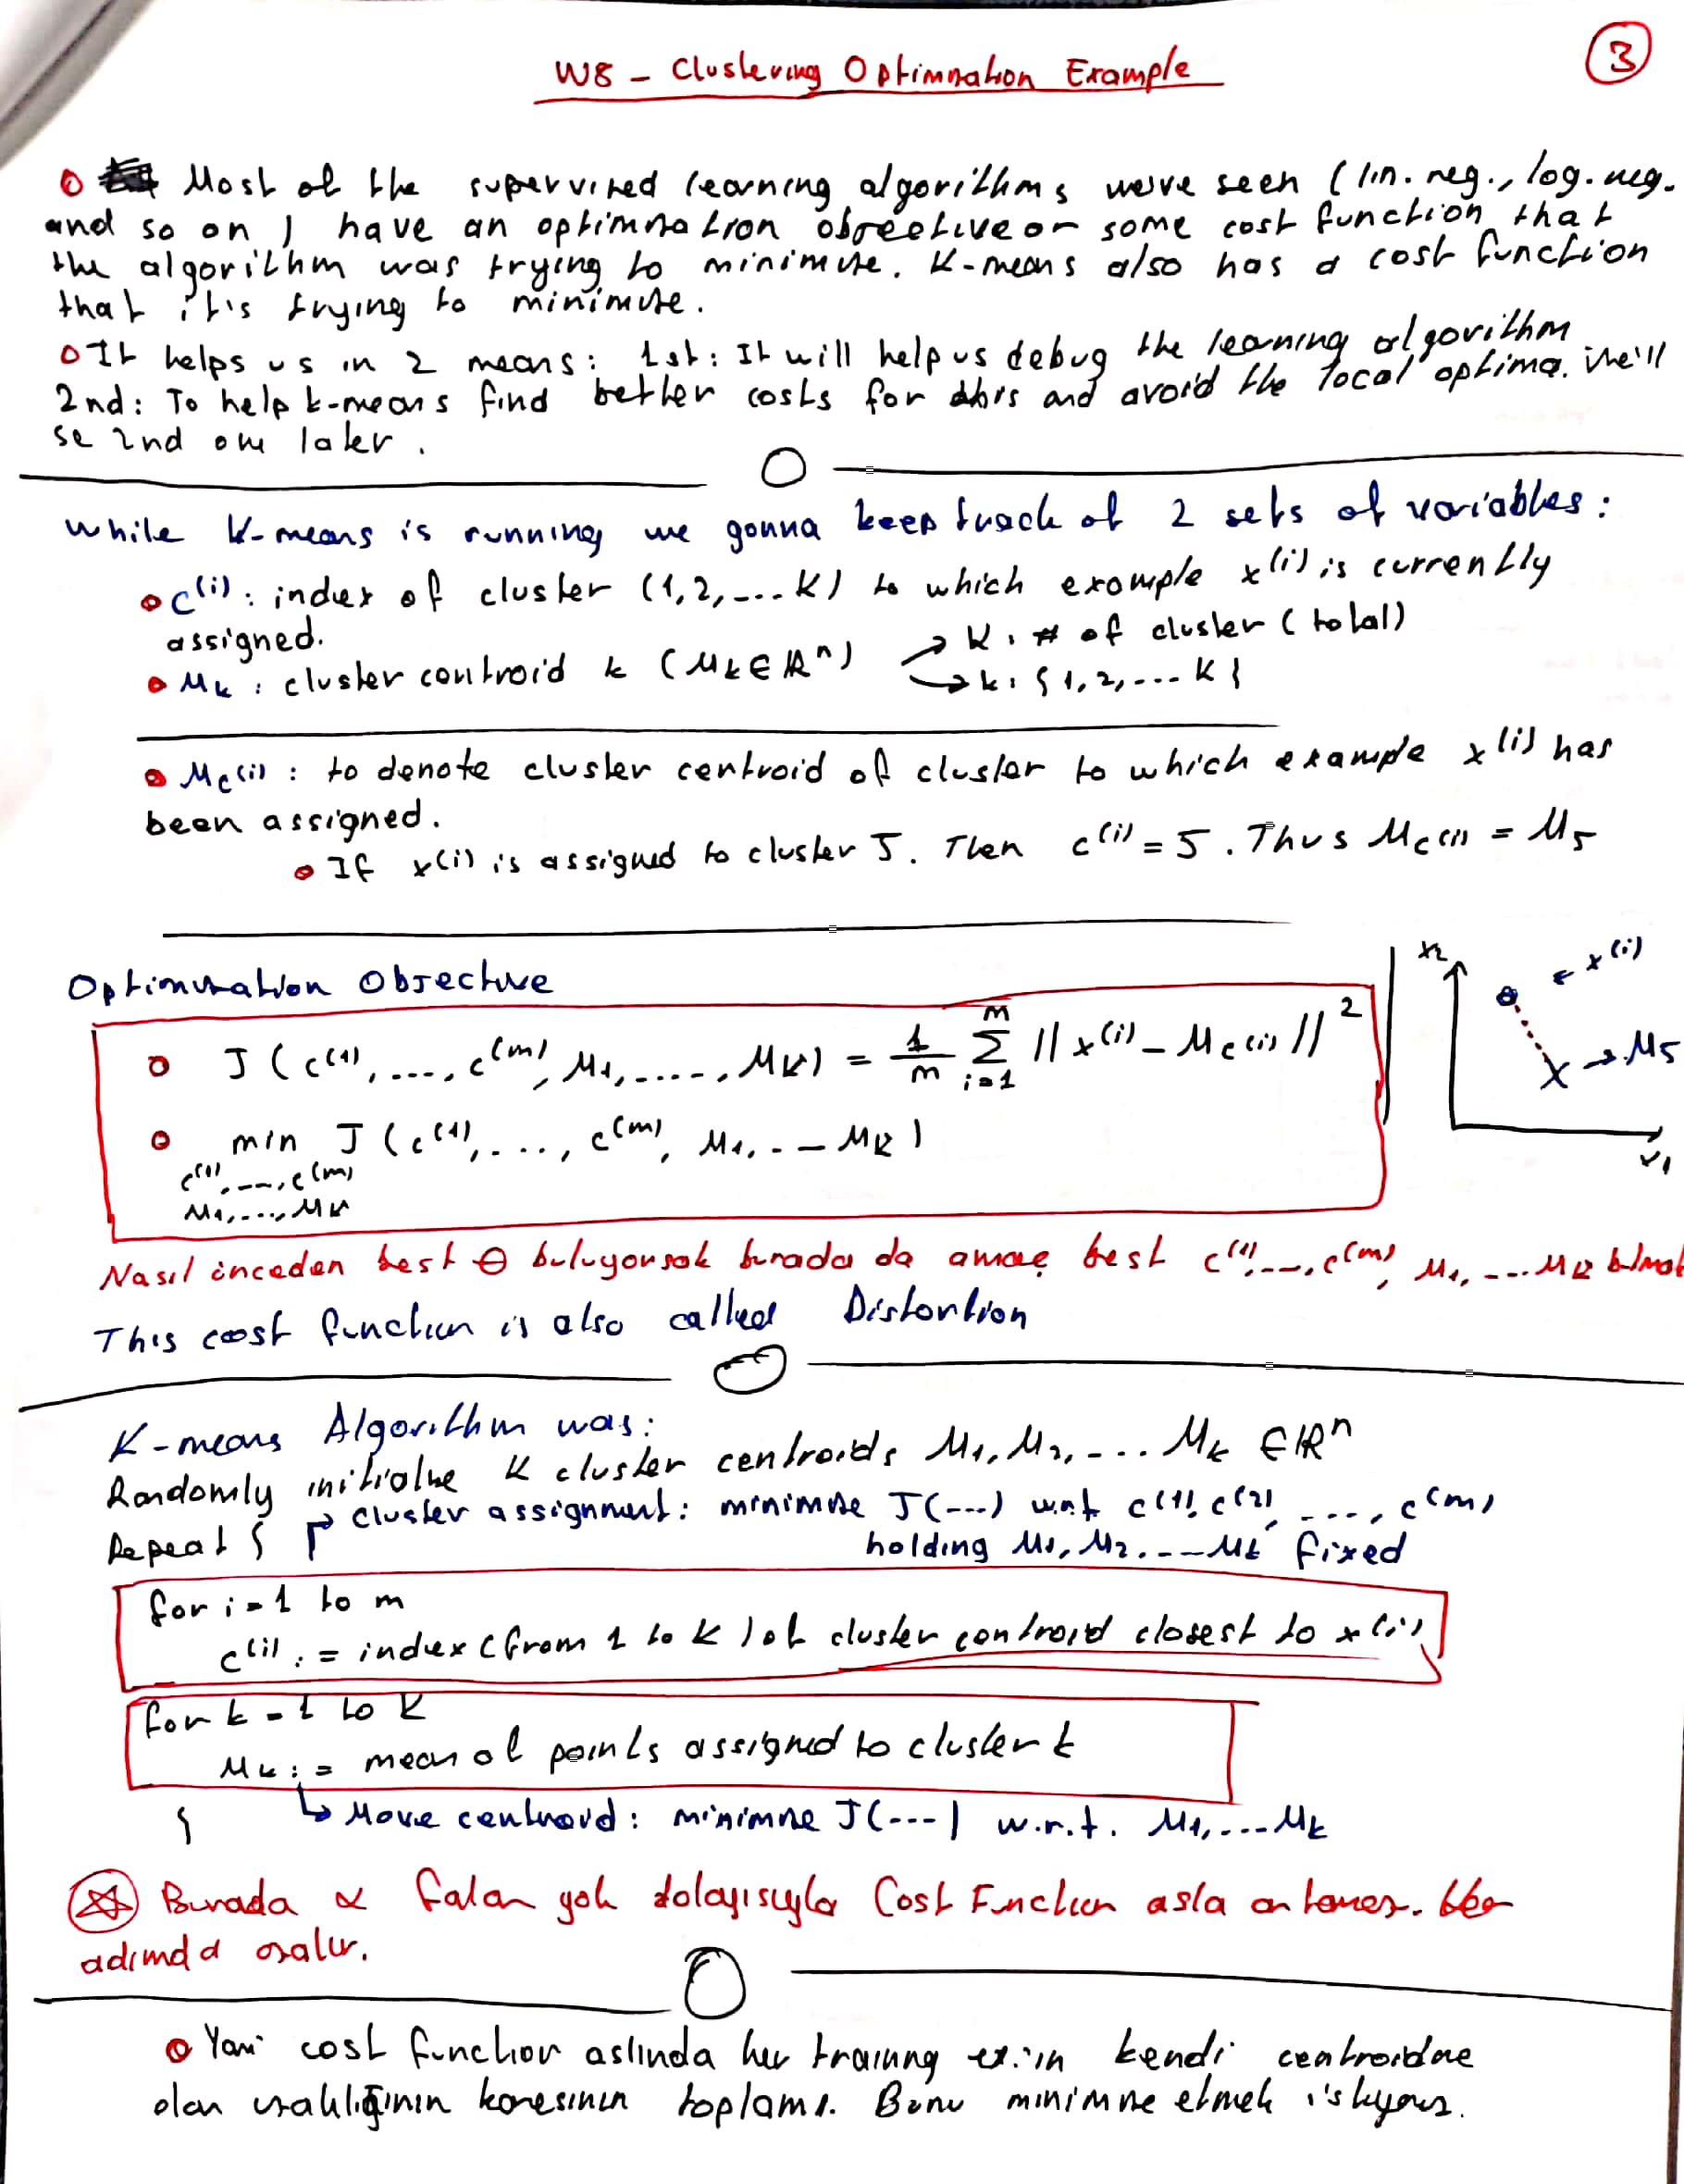 W8 - Clustering Optimization Example
3
Most of the supervised learning algorithms we've seen (lin. reg., log. reg.
and so on) have an optimization objective or some cost function that
the algorithm was trying to minimize. K-means also has a cost function
that it's trying to minimize.
It helps us in 2 means: 1st: It will help us debug the learning algorithm
2nd: To help k-means find better costs for this and avoid the local optima. We'll
se 2nd one later.
While K-means is running we gonna keep track of 2 sets of variables:
c^(i): index of cluster (1,2,... K) to which example x^(i) is currently
assigned.
→ K: # of cluster (total)
μk: cluster centroid k (μk ∈ ℝ^n)
→ k: {1,2,... K}
μc(i): to denote cluster centroid of cluster to which example x^(i) has
been assigned.
If x(i) is assigned to cluster 5. Then c^(i) = 5. Thus μc(i) = μ5
Optimization Objective
J(c^(1), ..., c^(m), μ1, ....., μK) = 1/m Σ_{i=1}^{m} ||x^(i) - μc(i)||^2
min J(c^(1), ..., c^(m), μ1, ... μK)
c^(1), ..., c^(m)
μ1, ..., μK
x2
← x^(i)
→ μ5
x1
Nasıl önceden best θ buluyorsak burada da amaç best c^(1), ..., c^(m), μ1, ... μK bulmak
This cost function is also called Distortion
K-means Algorithm was:
Randomly initialize K cluster centroids μ1, μ2, ... μk ∈ ℝ^n
Repeat {
→ cluster assignment: minimize J(...) w.r.t c^(1), c^(2), ..., c^(m)
holding μ1, μ2, ... μk fixed
for i = 1 to m
c^(i) := index (from 1 to K) of cluster centroid closest to x^(i)
for k = 1 to K
μk := mean of points assigned to cluster k
}
↳ Move centroid: minimize J(...) w.r.t. μ1, ... μk
Burada α falan yok dolayısıyla Cost Function asla artamaz. Her
adımda azalır.
Yani cost function aslında her training ex.'in kendi centroidine
olan uzaklığının karesinin toplamı. Bunu minimize etmek istiyoruz.